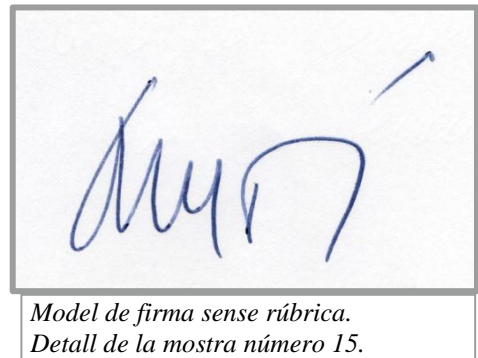 Model de firma sense rúbrica.
Detall de la mostra número 15.